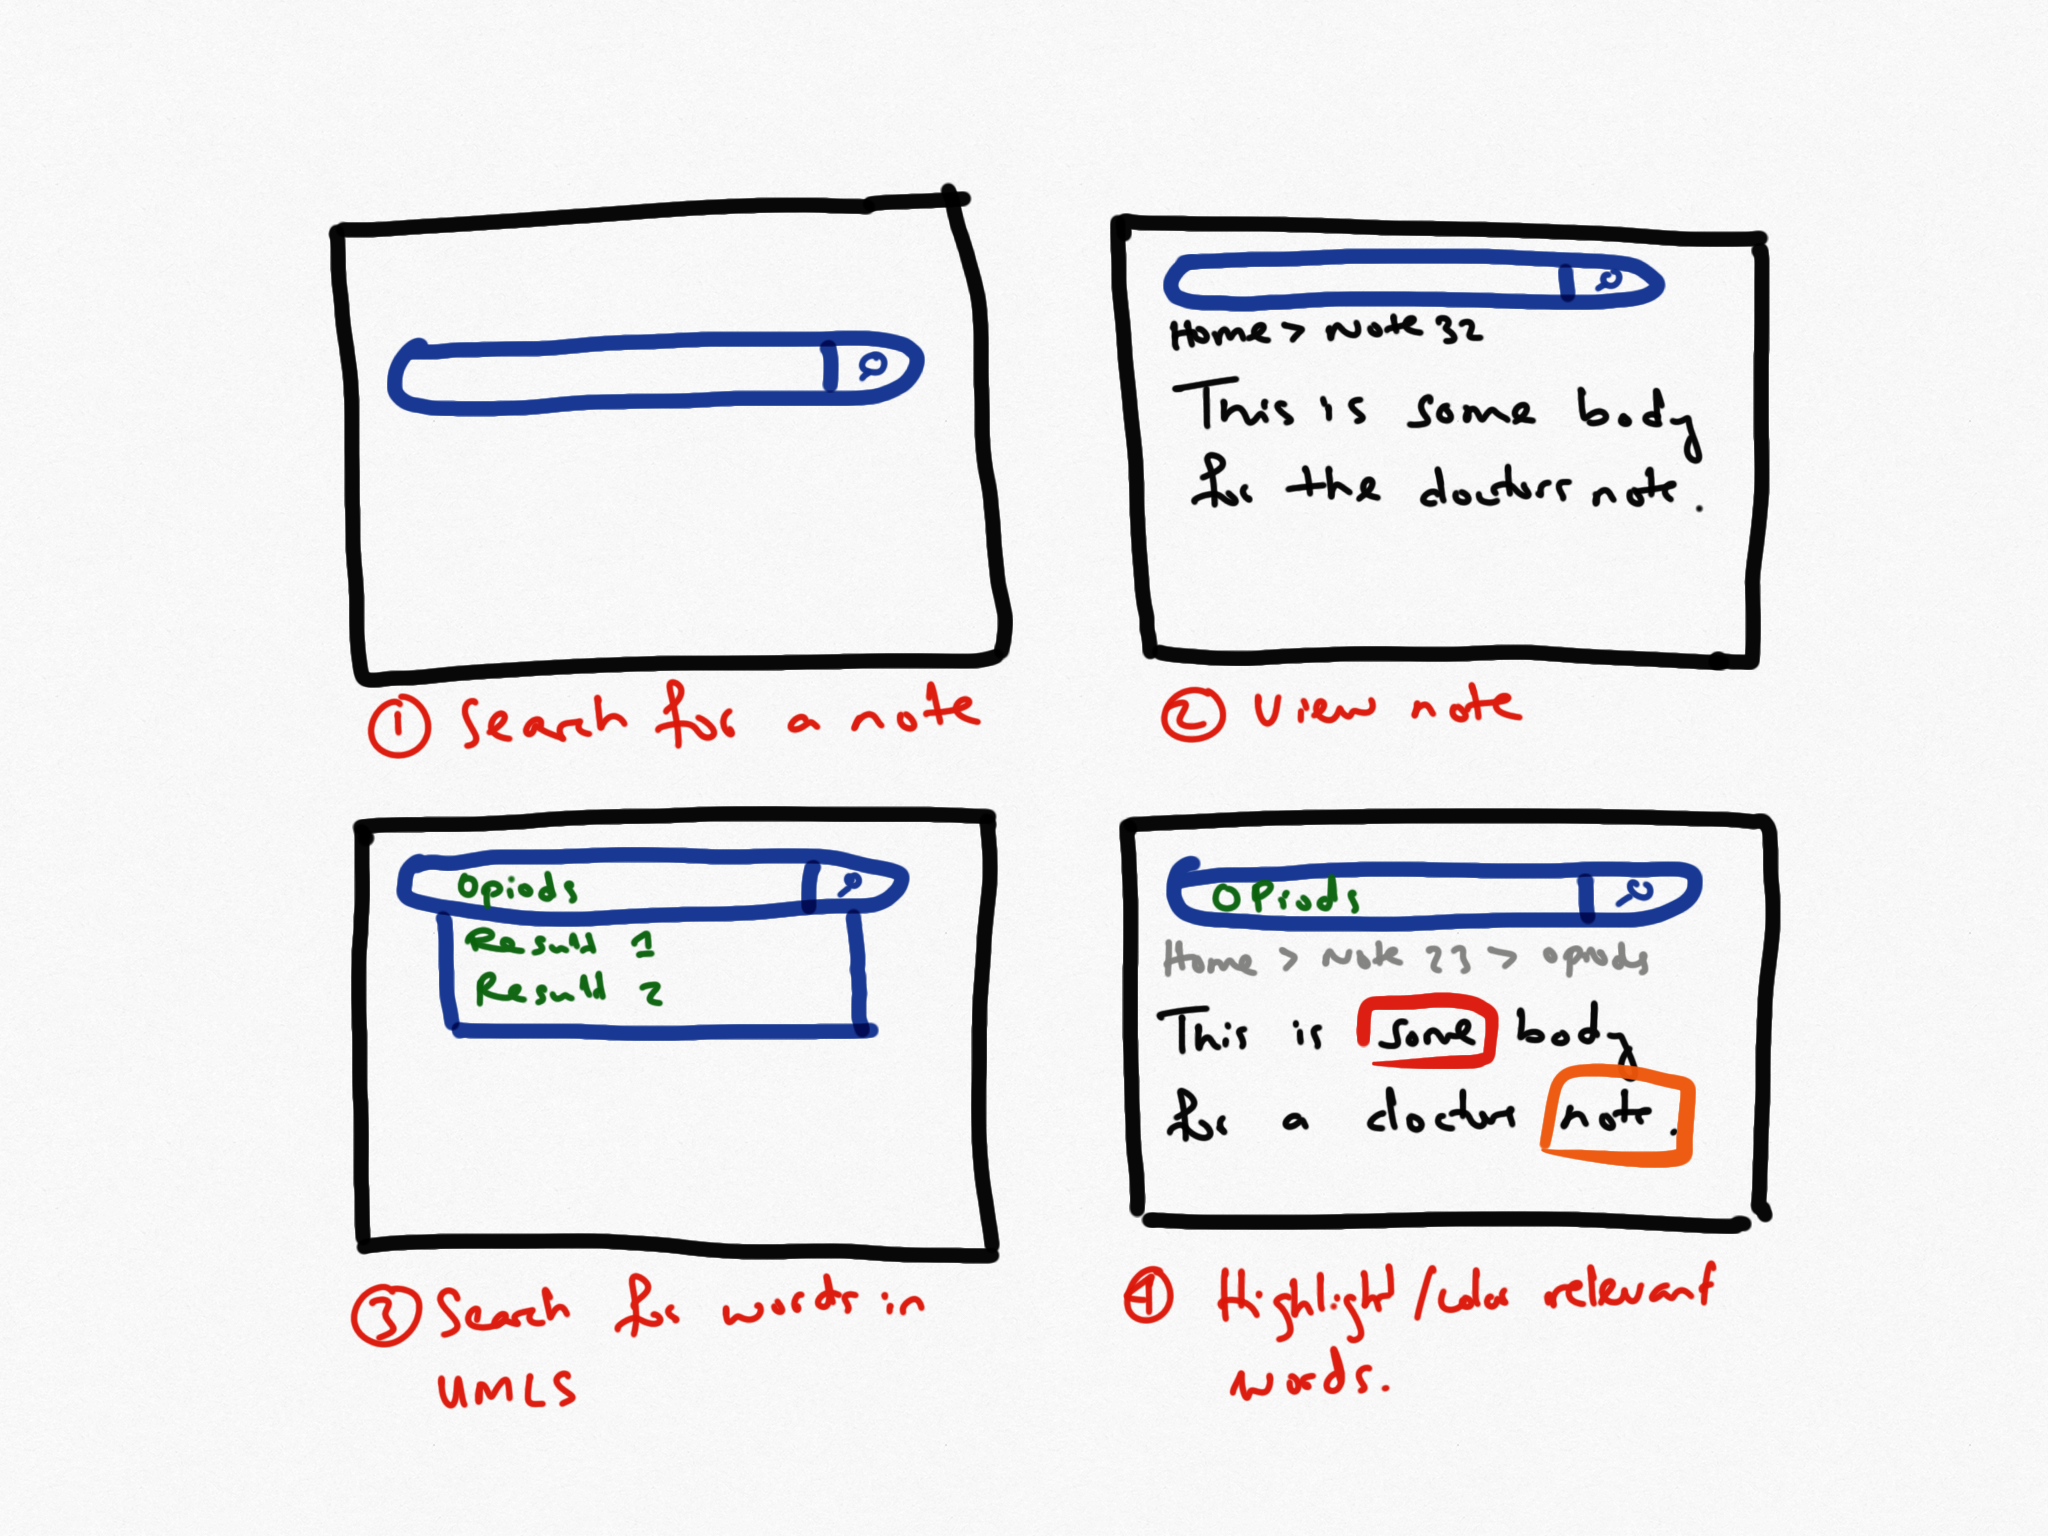 Home > Note 32
This is some body
for the doctors note.
① Search for a note
② View note
Opiods
Result 1
Result 2
③ Search for words in
UMLS
Opiods
Home > Note 23 > opiods
This is some body
for a doctors note.
④ Highlight/color relevant
words.